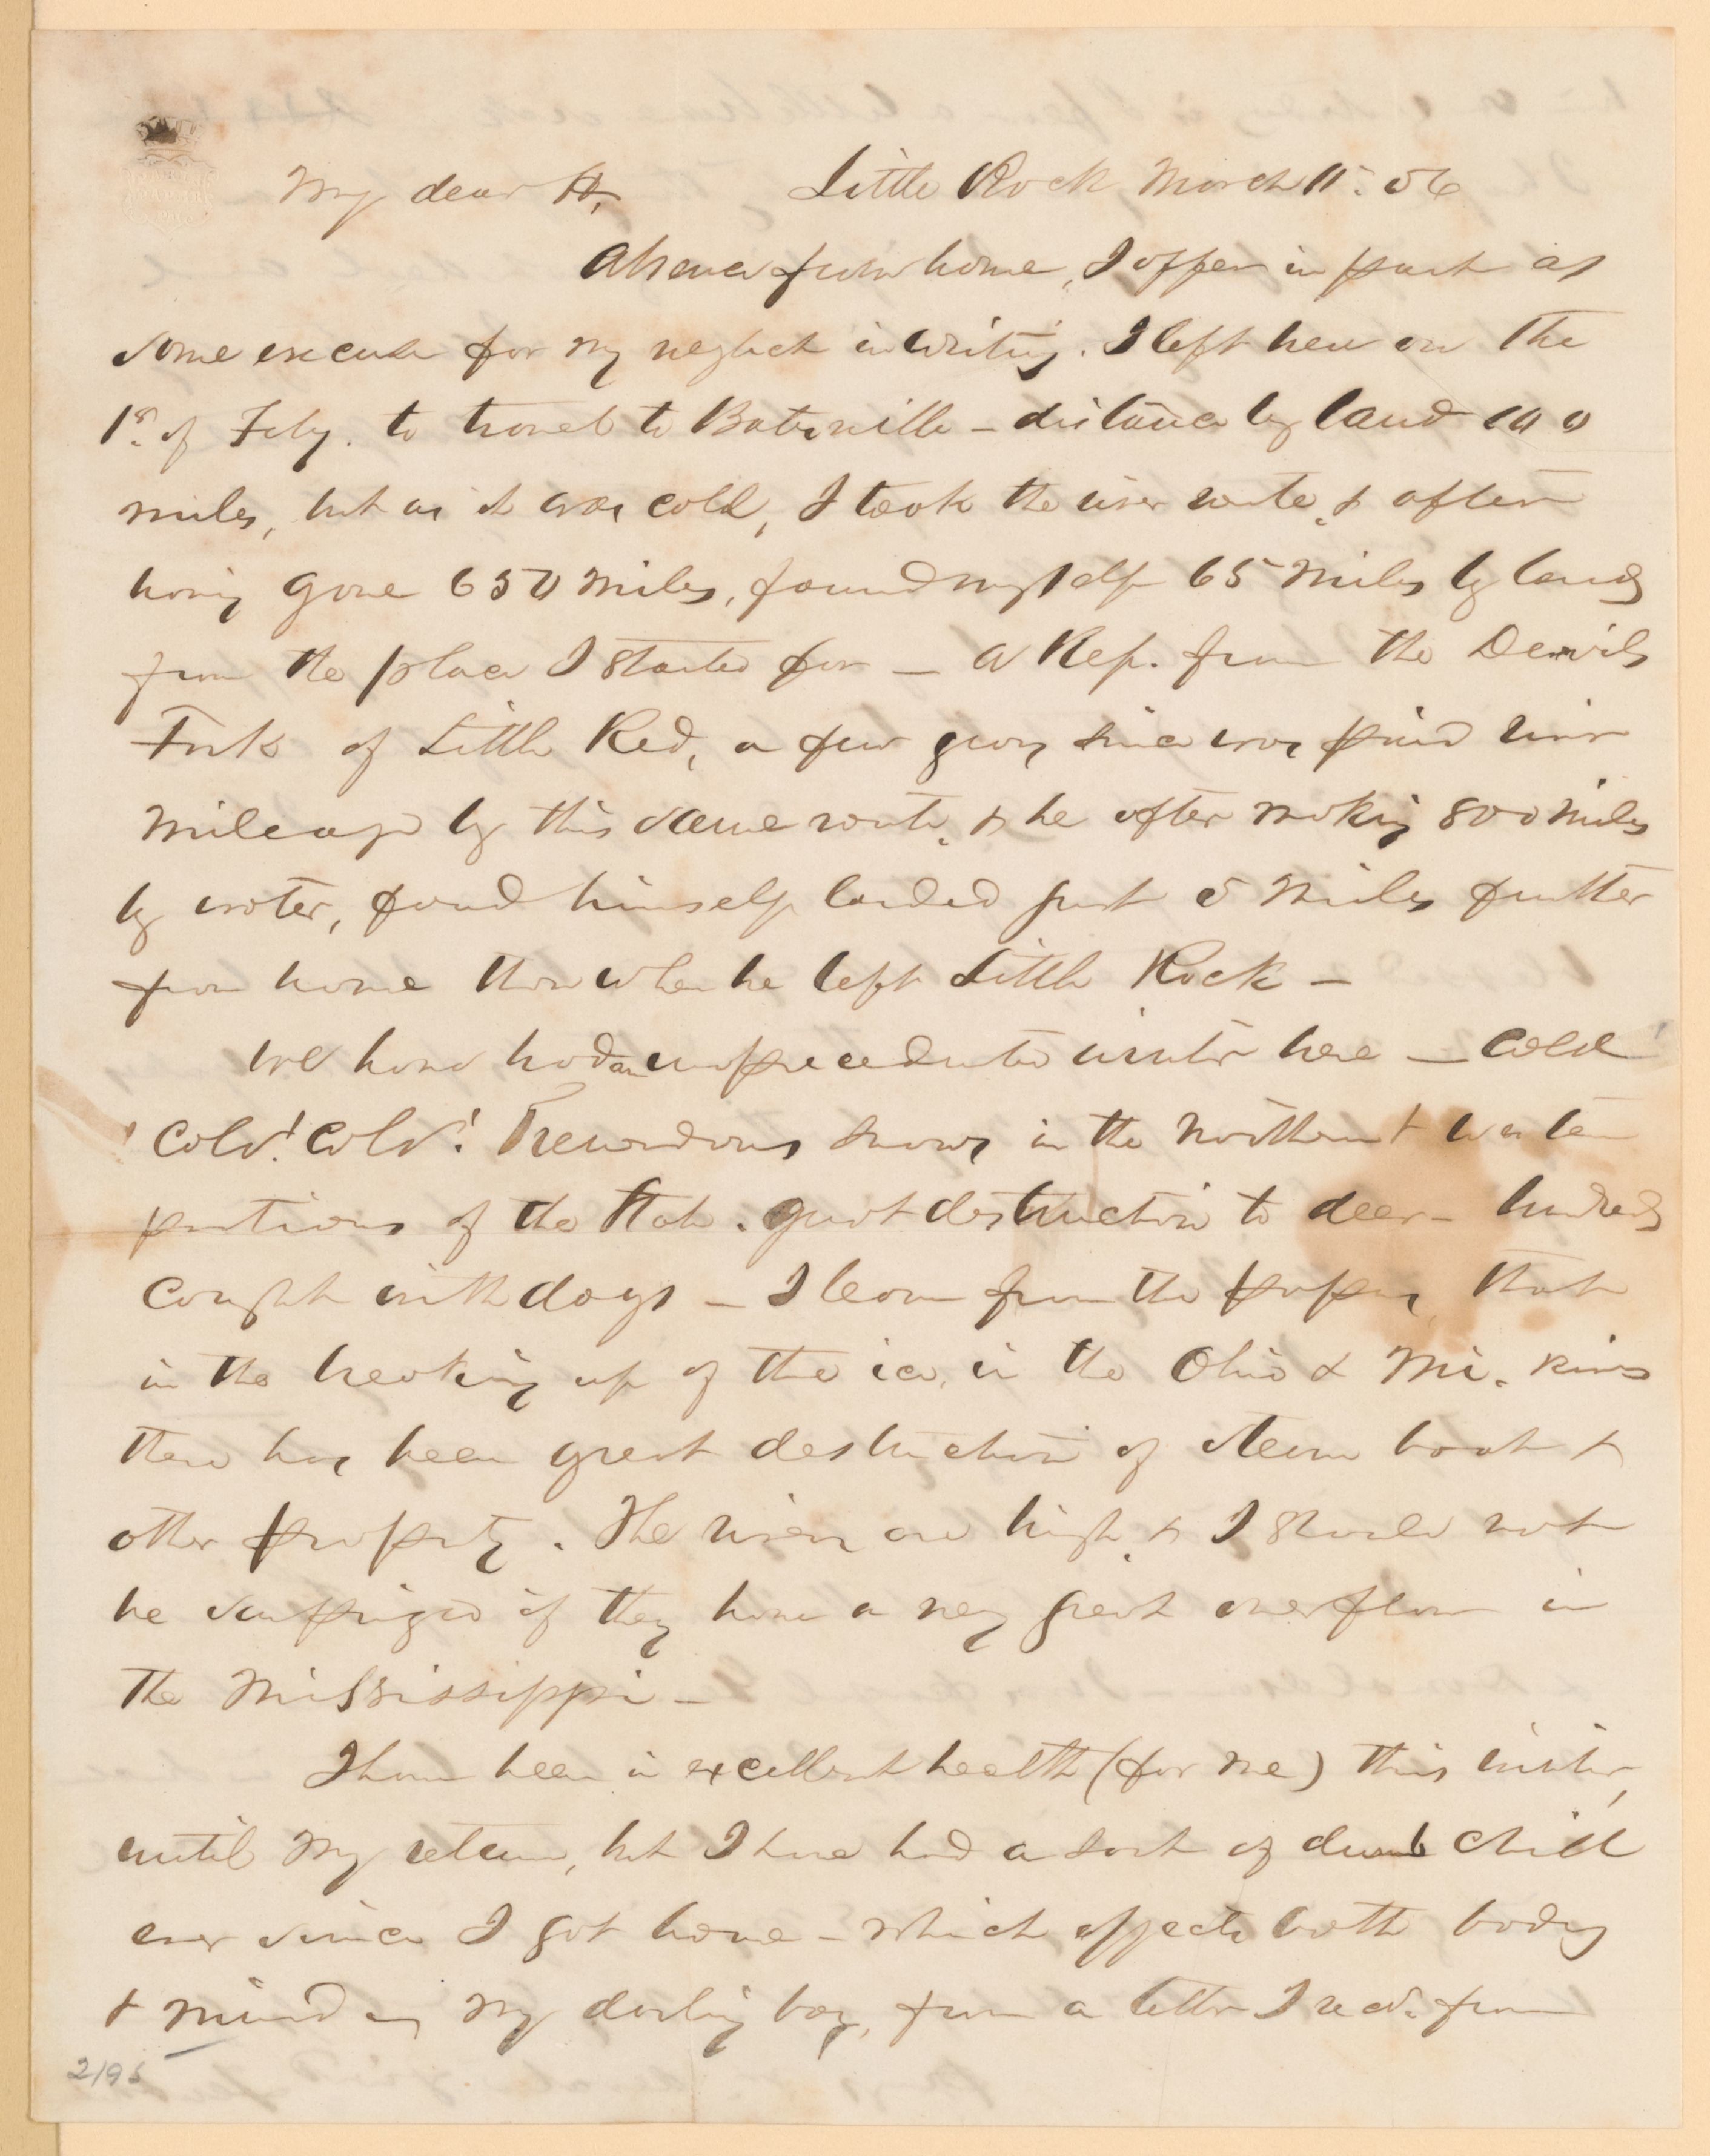 My dear H. Little Rock March 11th. 56
Absence from home, I offer in part as
some excuse for my neglect in writing. I left here on the
1st. of Feby. to travel to Batesville – distance by land 100
miles, but as it was cold, I took the river route, & after
having gone 650 miles, found myself 65 miles by land
from the place I started for – A Rep. from the Devils
Fork of Little Red, a few years since was paid river
mileage by this same route, & he after making 800 miles
by water, found himself landed just 5 miles further
from home than when he left Little Rock –
We have had an unprecedented winter here – Cold
Cold! Cold! Tremendous snows in the northern & western
portions of the State. great destruction to deer – hundreds
caught with dogs – I learn from the papers, that
in the breaking up of the ice, in the Ohio & Mi. rivers
there has been great destruction of steam boats &
other property. The rivers are high, & I should not
be surprized if they have a very great overflow in
the Mississippi –
I have been in excellent health (for me) this winter,
until my return, but I have had a sort of dumb chill
ever since I got home – which affects both body
& mind my darling boy, from a letter I recd. from
2195